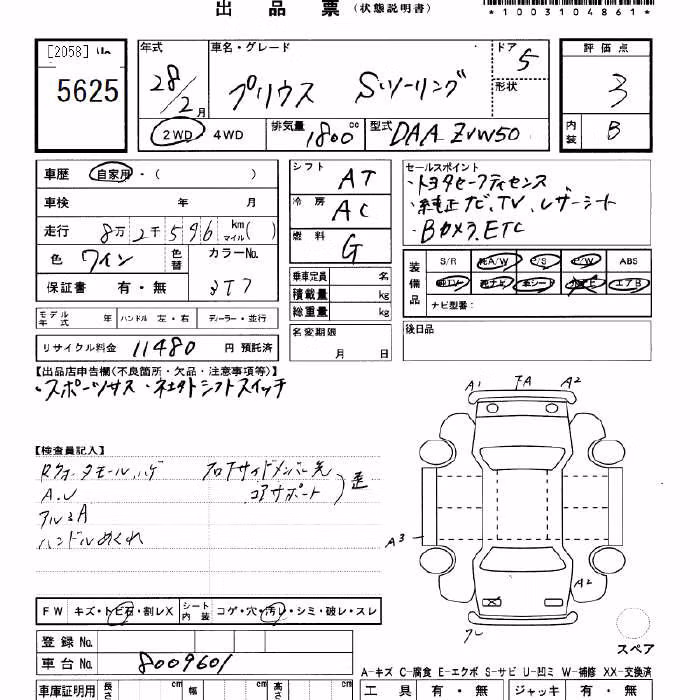 出品票（状態説明書）
*1003104861*
[2058]
5625
年式 28/2月
車名・グレード プリウス Sツーリング
ドア 5
形状
2WD 4WD
排気量 1800cc
型式 DAA ZVW50
評価点 3
内装 B
車歴 自家用・( )
車検 年 月
走行 8万2千596km マイル( )
色 ワイン 色替 カラーNo. 3T7
保証書 有・無
シフト AT
冷房 AC
燃料 G
乗車定員 名
積載量 kg
総重量 kg
セールスポイント
・トヨタセーフティセンス
・純正ナビ、TV、レザーシート
・Bカメラ、ETC
装備品 S/R 純A/W P/S P/W ABS
純TV 純ナビ 革シート エアB
ナビ型番:
モデル年式 年 ハンドル 左・右 ディーラー・並行
名変期限 月 日
後日品
リサイクル料金 11480 円 預託済
【出品店申告欄(不良箇所・欠品・注意事項等)】
・スポーツサス ・ネセタトシフトスイッチ
【検査員記入】
Rクォータモール、ハゲ
A.U
アルミA
ハンドルめくれ
フロアサイドメンバー先
コアサポート
歪
A1 FA A2
A3
A2
FW キズ・トビ石・割レX シート内装 コゲ・穴・汚レ・シミ・破レ・スレ
スペア
登録No.
車台No. 8009601
A-キズ C-腐食 E-エクボ S-サビ U-凹ミ W-補修 XX-交換済
車庫証明用 長さ cm 幅 cm 高さ cm
工具 有・無 ジャッキ 有・無